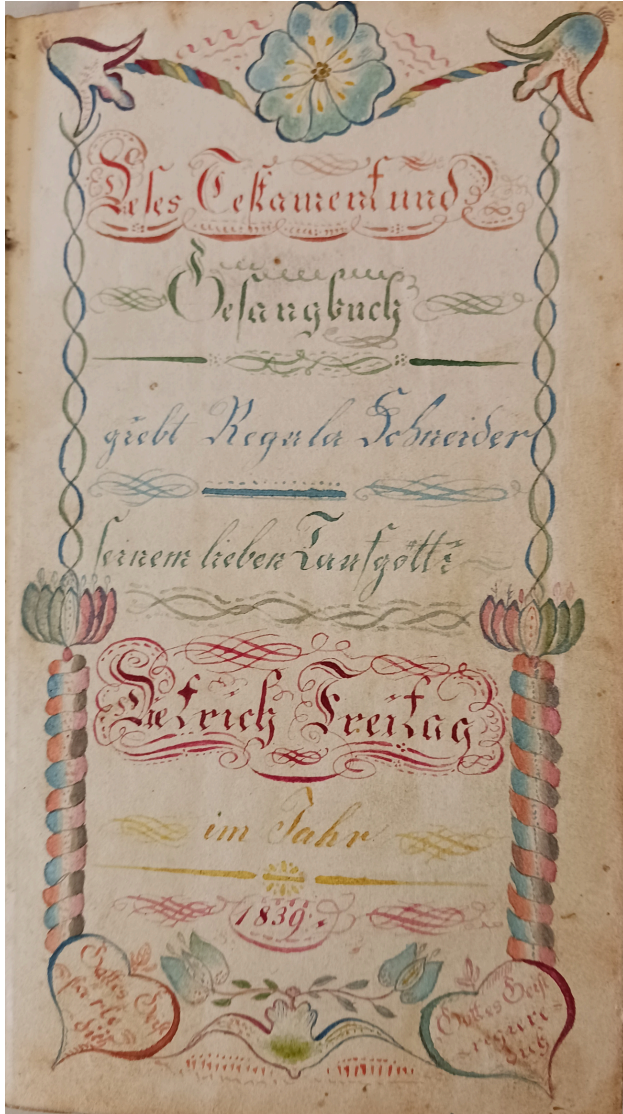 Dieses Testament und
Gesangbuch
giebt Regula Schneider
seinem lieben Taufgötti
Dietrich Freitag
im Jahr
1839.
Gottes Geist
dich
Gottes Geist
regiere
dich